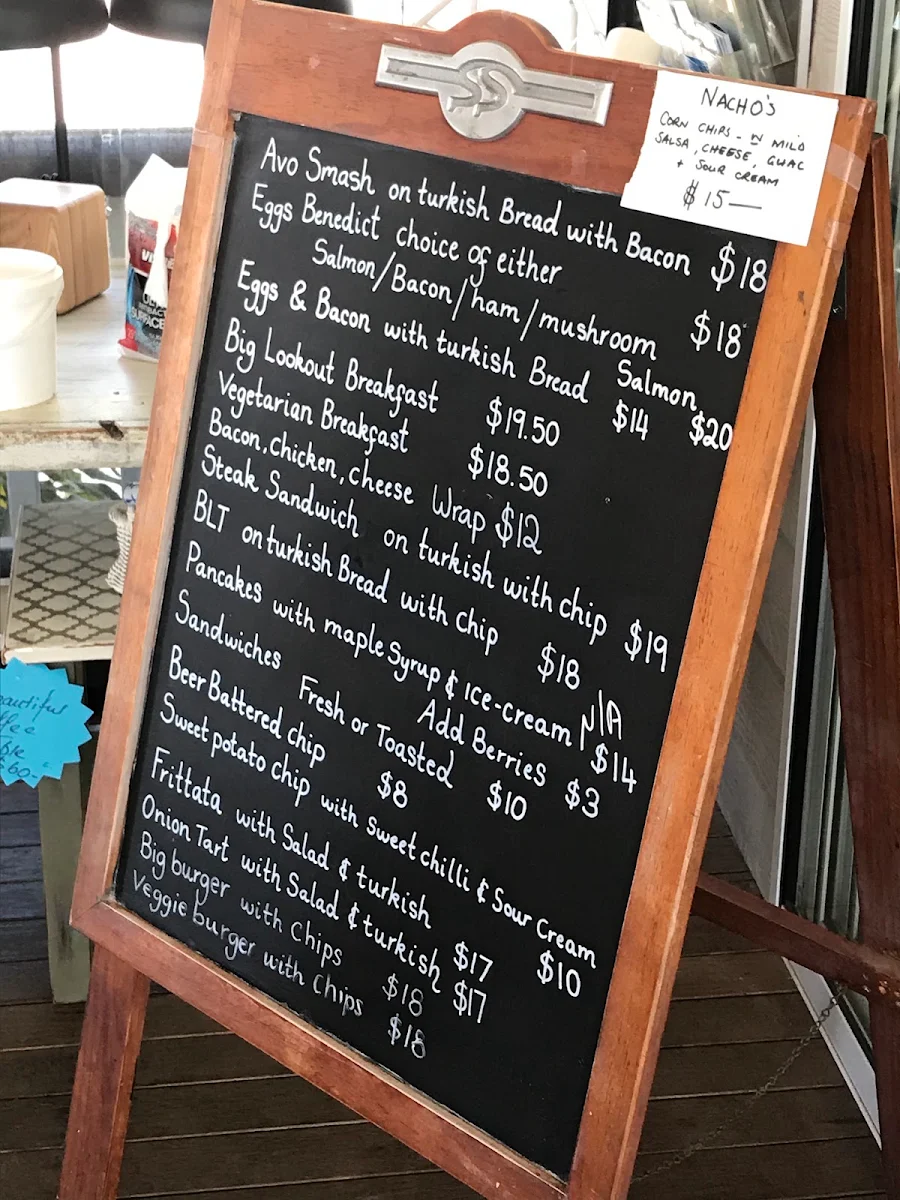 NACHO'S
CORN CHIPS - IN MILD
SALSA, CHEESE, GUAC
+ SOUR CREAM
$15—
Avo Smash on turkish Bread with Bacon $18
Eggs Benedict choice of either
Salmon/Bacon/ham/mushroom $18
Eggs & Bacon with turkish Bread $14 Salmon $20
Big Lookout Breakfast $19.50
Vegetarian Breakfast $18.50
Bacon, chicken, cheese Wrap $12
Steak Sandwich on turkish with chip $19
BLT on turkish Bread with chip $18
Pancakes with maple Syrup & Ice-cream N/A $14
Add Berries $3
Sandwiches Fresh or Toasted $10
Beer Battered chip $8
Sweet potato chip with sweet chilli & Sour Cream $10
Frittata with Salad & turkish $17
Onion Tart with Salad & turkish $17
Big burger with Chips $18
Veggie burger with Chips $18